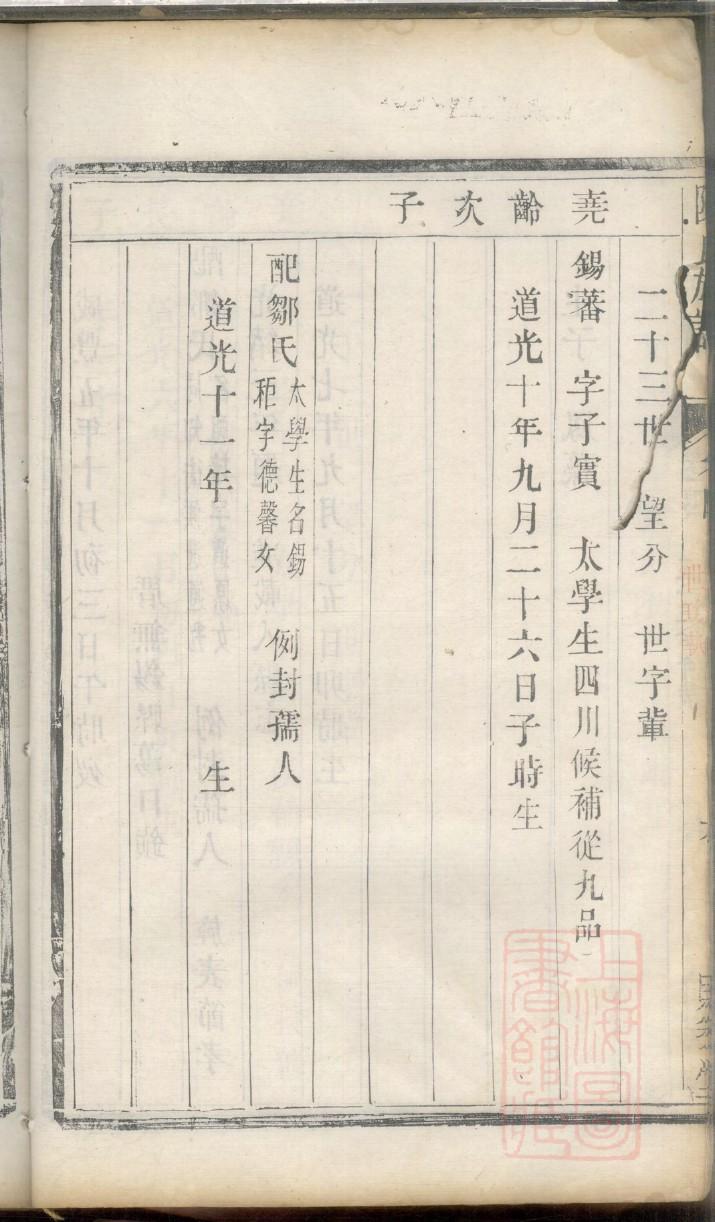 二十三世 望分 世字輩
堯齡次子
錫蕃 字子實 太學生四川候補從九品
道光十年九月二十六日子時生
配鄒氏 太學生名錫
秬字德馨女 例封孺人
道光十一年 生
上海圖書館藏